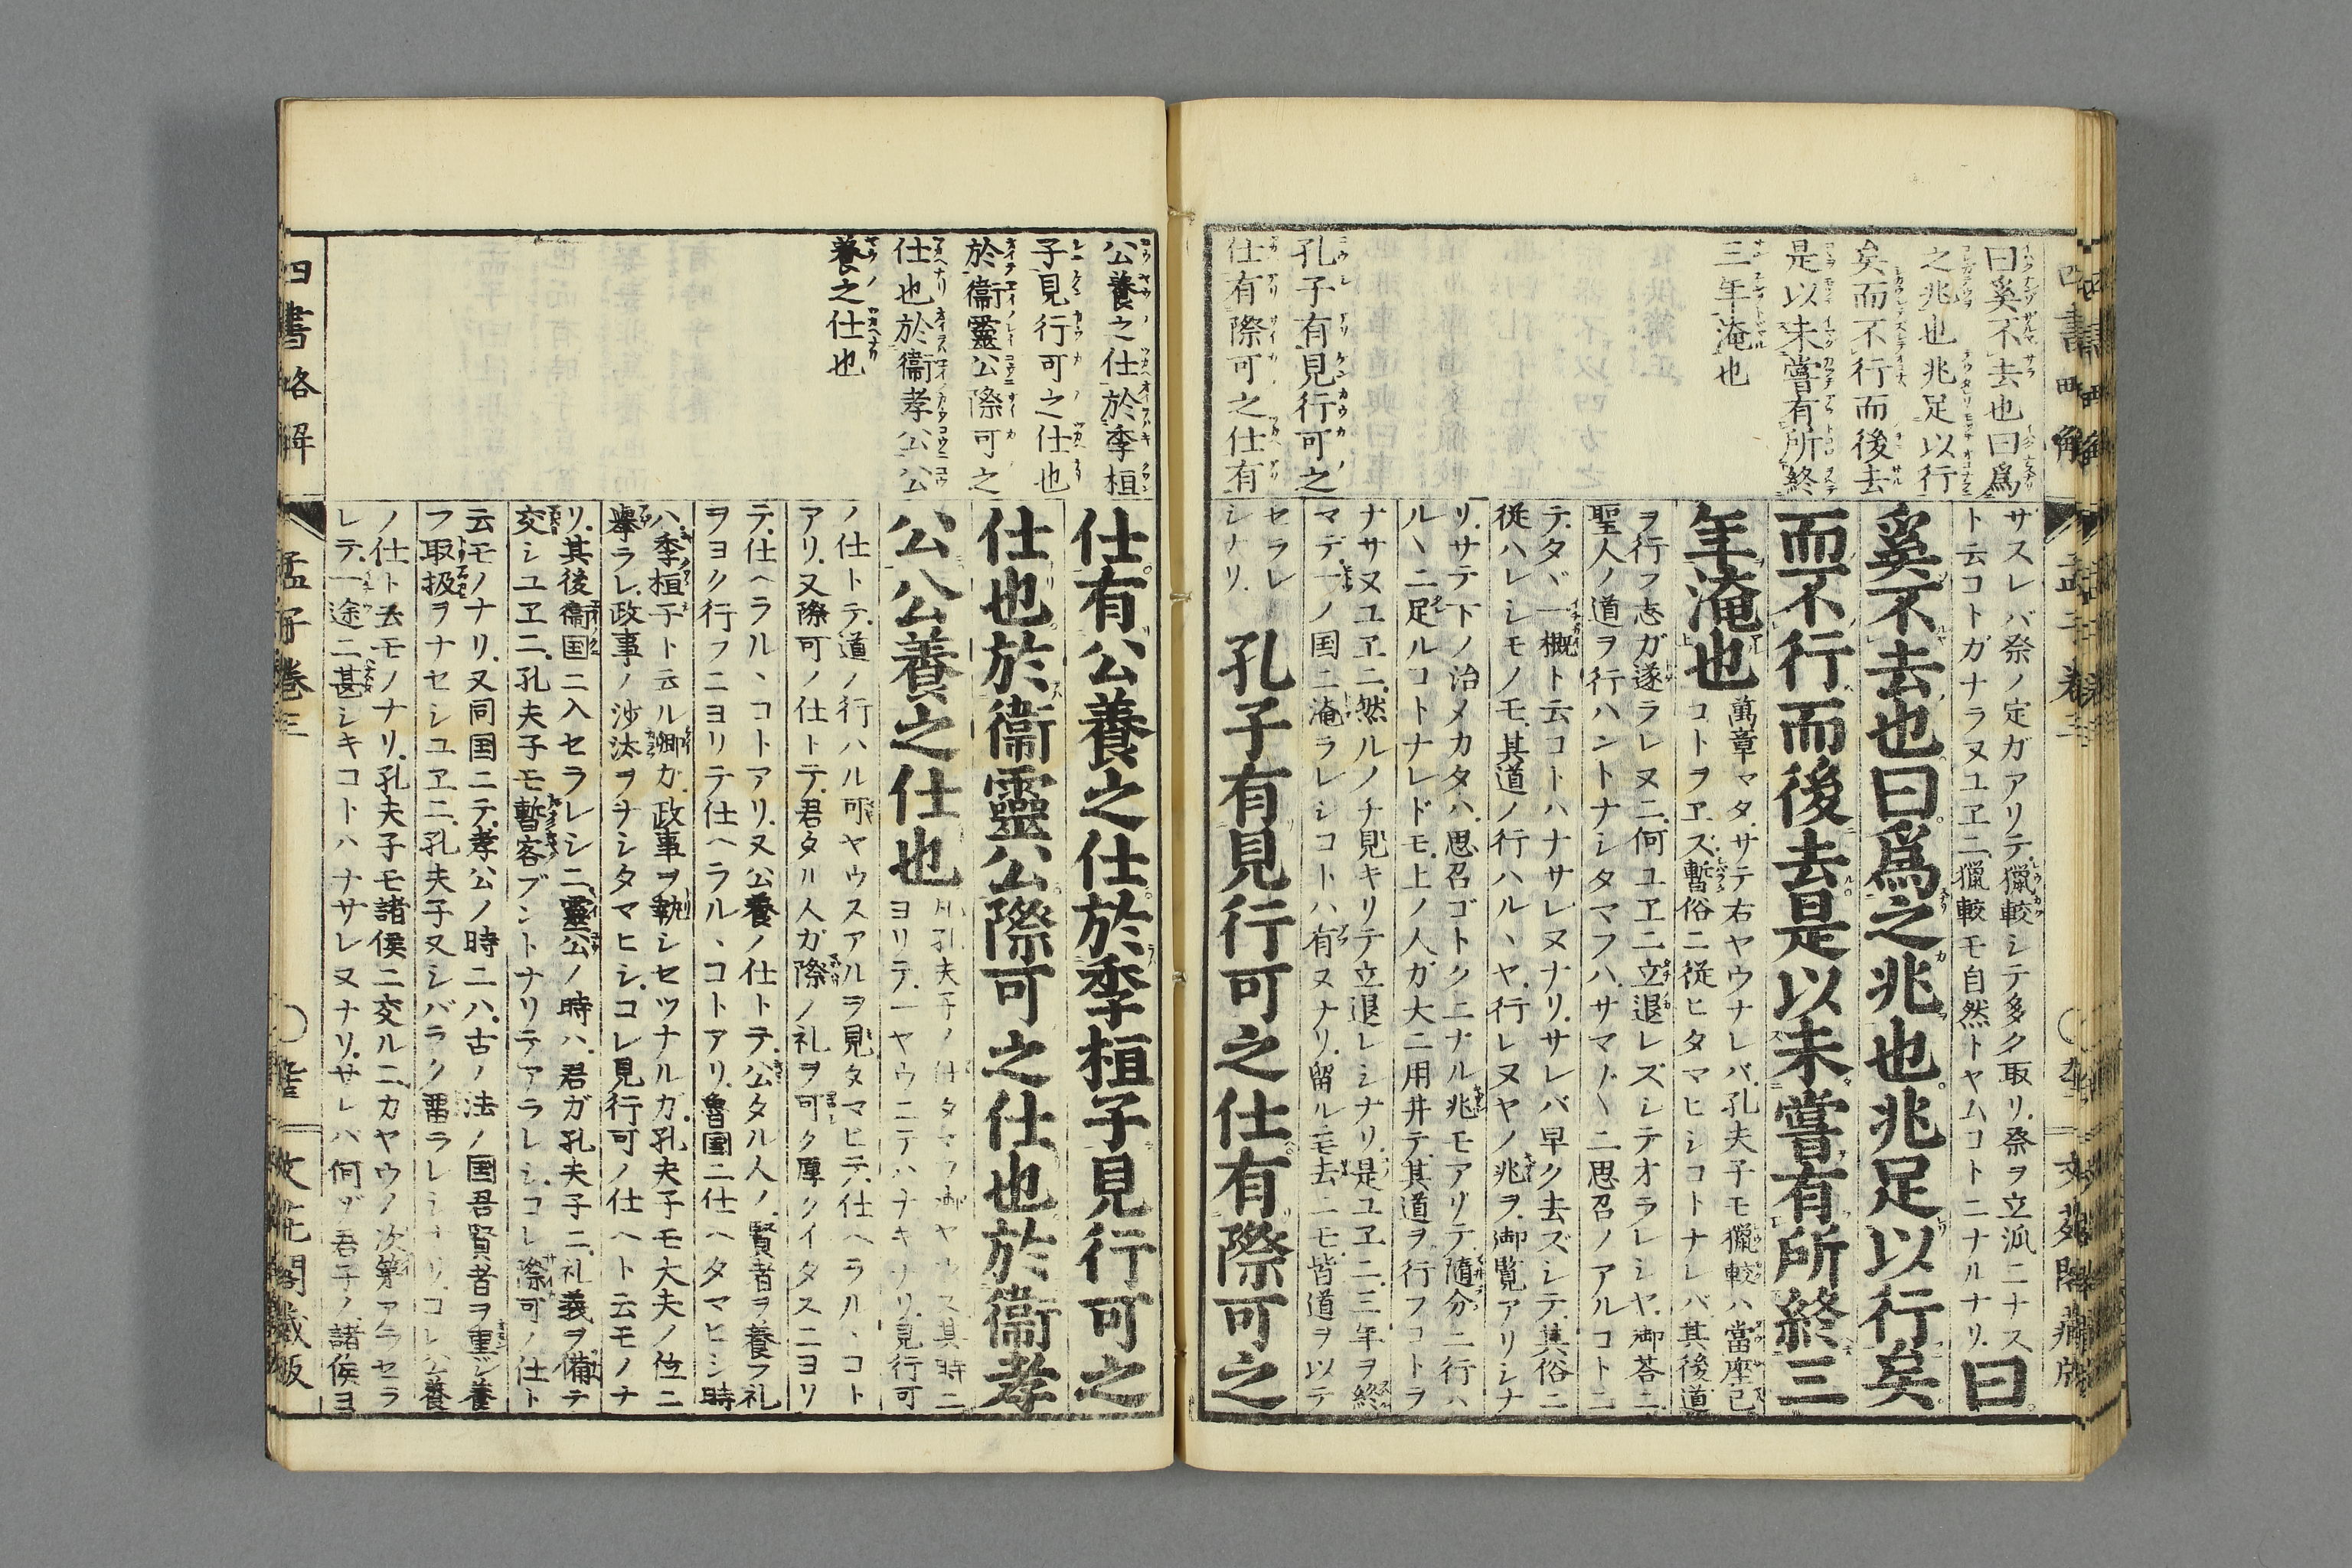 曰奚不去也曰爲
之兆也兆足以行
矣而不行而後去
是以未嘗有所終
三年淹也
孔子有見行可之
仕有際可之仕有
サスレバ祭ノ定ガアリテ獵較シテ多ク取リ祭ヲ立派ニナス
ト云コトガナラヌユヱニ獵較モ自然トヤムコトニナルナリ曰
奚不去也曰爲之兆也兆足以行矣
而不行而後去是以未嘗有所終三
年淹也
萬章マタサテ右ヤウナレバ孔夫子モ獵較ハ當座已
コトヲヱズ暫俗ニ従ヒタマヒシコトナレバ其後道
ヲ行フ志ガ遂ラレヌニ何ユヱニ立退レズシテオラレシヤ御荅ニ
聖人ノ道ヲ行ハントナシタマフハサマ〲ニ思召ノアルコトニ
テタヾ一概ト云コトハナサレヌナリサレバ早ク去ズシテ其俗ニ
従ハレシモノモ其道ノ行ハルヽヤ行レヌヤノ兆ヲ御覧アリシナ
リサテ下ノ治メカタハ思召ゴトクニナル兆モアリテ隨分ニ行ハ
ルヽニ足ルコトナレドモ上ノ人ガ大ニ用井テ其道ヲ行フコトヲ
ナサヌユヱニ然ルノチ見キリテ立退レシナリ是ユヱニ三年ヲ終
マデ一ノ国ニ淹ラレシコトハ有ヌナリ留ルモ去ニモ皆道ヲ以テ
セラレ
シナリ
孔子有見行可之仕有際可之
公養之仕於季桓
子見行可之仕也
於衞靈公際可之
仕也於衞孝公公
養之仕也
仕有公養之仕於季桓子見行可之
仕也於衞靈公際可之仕也於衞孝
公公養之仕也
凡孔夫子ノ仕タマフ御ヤウス其時ニ
ヨリテ一ヤウニテハナキナリ見行可
ノ仕トテ道ノ行ハル可ヤウスアルヲ見タマヒテ仕ヘラルヽコト
アリ又際可ノ仕トテ君タル人ガ際ノ礼ヲ可ク厚クイタスニヨリ
テ仕ヘラルヽコトアリ又公養ノ仕トテ公タル人ノ賢者ヲ養フ礼
ヲヨク行フニヨリテ仕ヘラルヽコトアリ魯国ニ仕ヘタマヒシ時
ハ季桓子ト云ル卿ガ政事ヲ執シセツナルガ孔夫子モ大夫ノ位ニ
擧ラレ政事ノ沙汰ヲナシタマヒシコレ見行可ノ仕ヘト云モノナ
リ其後衞国ニ入セラレシニ靈公ノ時ハ君ガ孔夫子ニ礼義ヲ備テ
交シユヱニ孔夫子モ暫客ブントナリテアラレシコレ際可ノ仕ト
云モノナリ又同国ニテ孝公ノ時ニハ古ノ法ノ国君賢者ヲ重ジ養
フ取扱ヲナセシユヱニ孔夫子又シバラク畱ラレシナリコレ公養
ノ仕ト云モノナリ孔夫子モ諸侯ニ交ルニカヤウノ次第アラセラ
レテ一途ニ甚シキコトハナサレヌナリサレバ何ゾ吾子ノ諸侯ヨ
四書略解
孟子巻三